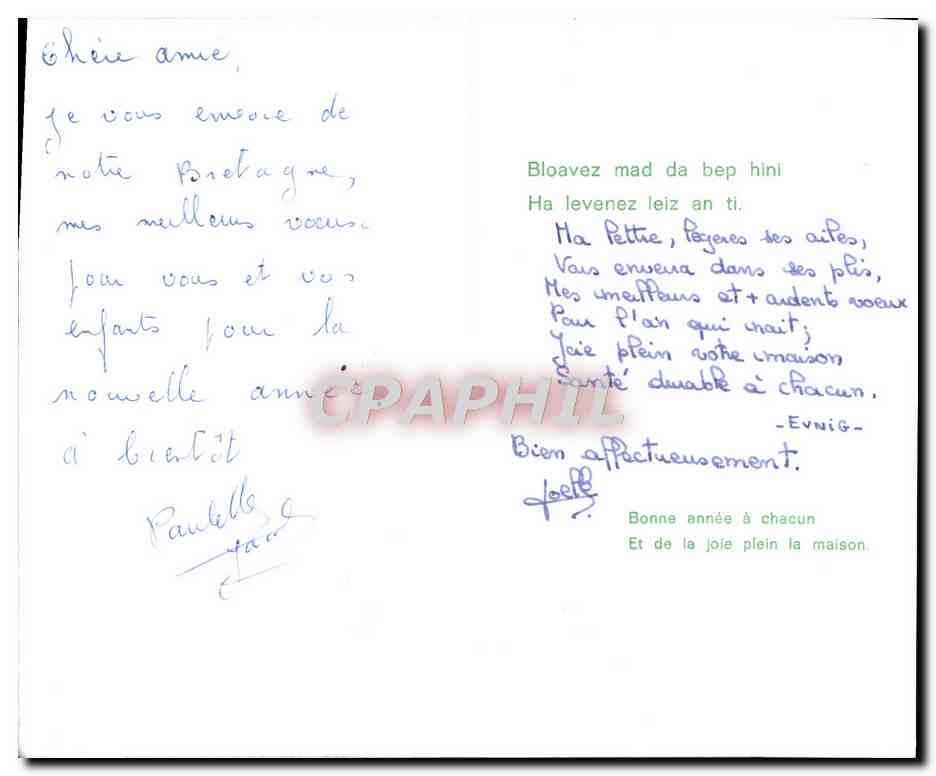 Chère amie,
Je vous envoie de
notre Bretagne,
mes meilleurs voeux
pour vous et vos
enfants pour la
nouvelle année.
à bientôt
Paulette
Bloavez mad da bep hini
Ha levenez leiz an ti.
Ma lettre, légères ses ailes,
Vous enverra dans ses plis,
Mes meilleurs et + ardents voeux
Pour l'an qui nait;
Joie plein votre maison
Santé durable à chacun.
- EVNIG -
Bien affectueusement.
Joelle
Bonne année à chacun
Et de la joie plein la maison.
CPAPHIL